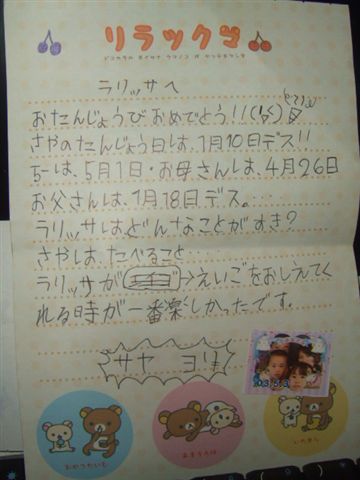 リラックマ
ラリッサへ
おたんじょうびおめでとう!!(^^)
さやのたんじょう日は、1月10日デス!!
ちーは、5月1日・お母さんは、4月26日
お父さんは、1月18日デス。
ラリッサは、どんなことがすき?
さやは、たべること…
ラリッサが→えいごをおしえてく
れる時が一番楽しかったです。
サヤ ヨリ